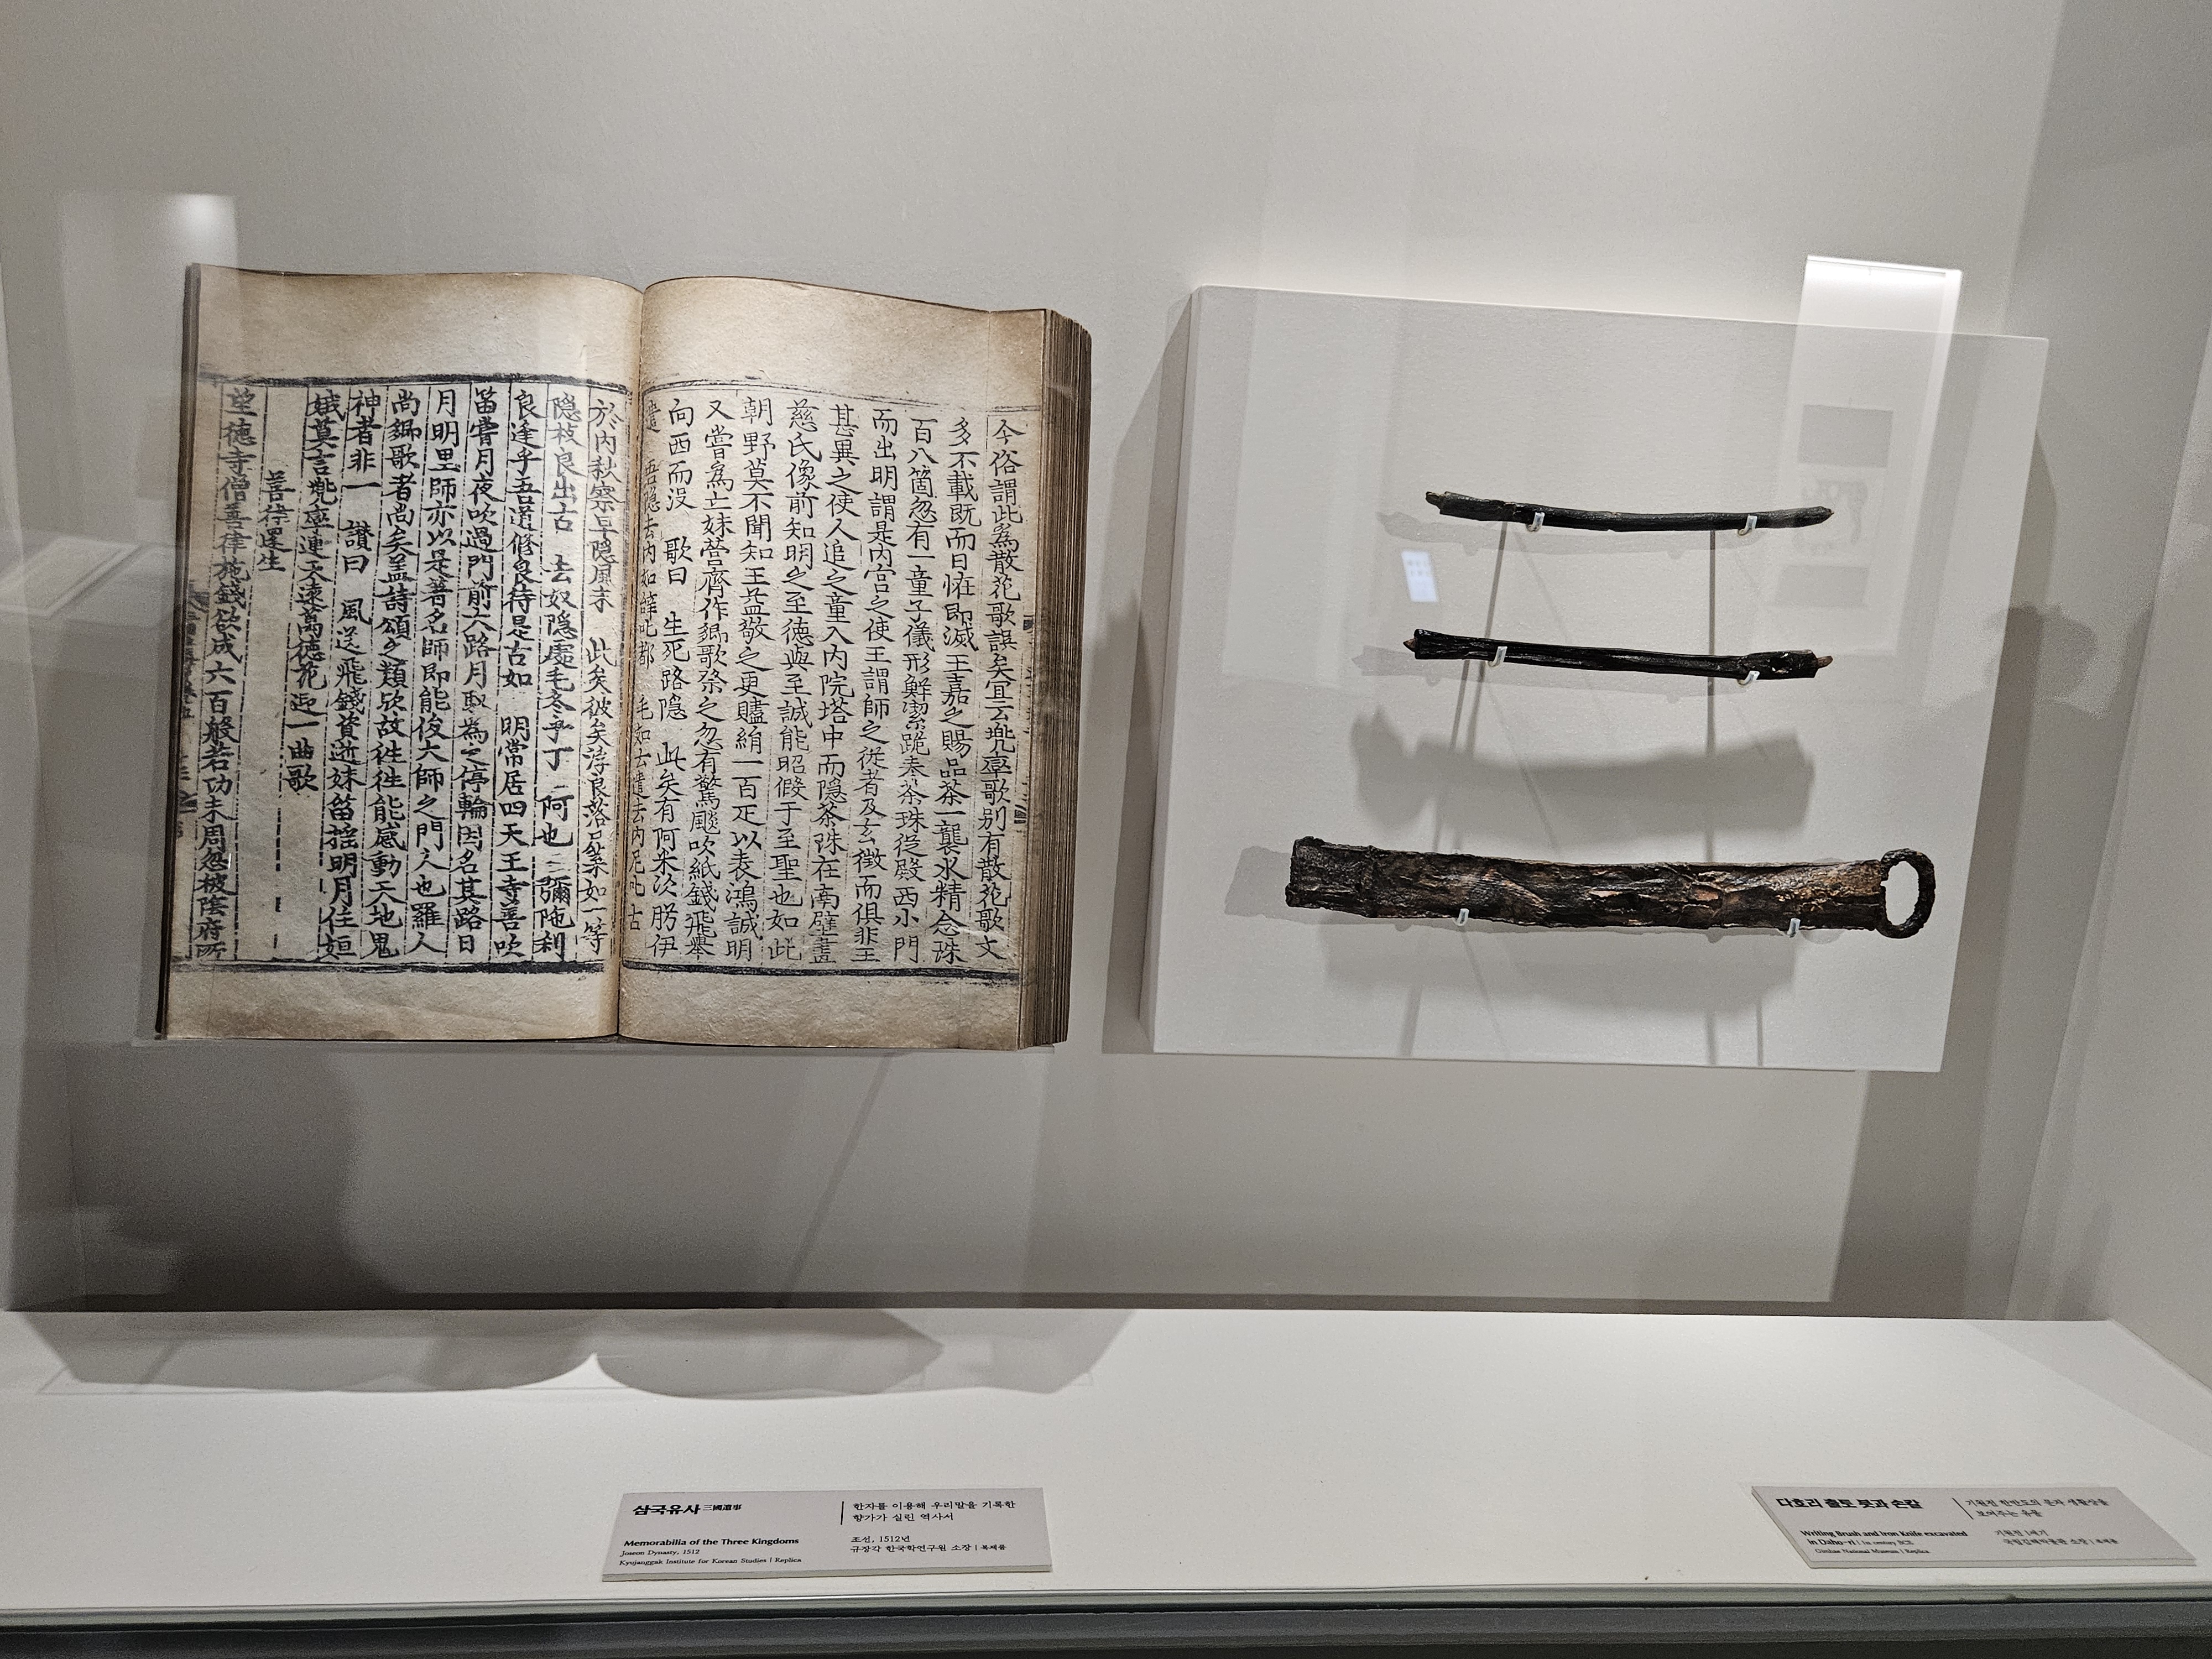 今俗謂此為散花歌誤矣宜云兜率歌别有散花歌文
多不載既而日恠即滅王嘉之賜品茶一襲水精念珠
百八箇忽有一童子儀形鮮潔跪奉茶珠從殿西小門
而出明謂是内宫之使王謂師之從者及玄徵而俱非王
甚異之使人追之童入内院塔中而隐茶珠在南壁畫
慈氏像前知明之至德與至誠能昭假于至聖也如此
朝野莫不聞知王益敬之更贐絹一百疋以表鴻誠明
又嘗為亡妹營齋作郷歌祭之忽有驚颷吹紙錢飛舉
向西而没 歌曰 生死路隐 此矣有阿米次肹伊
遣 吾隐去内如辝叱都 毛如去遣去内尼叱古
於内秋察早隐風未 此矣彼矣浮良落尸葉如 一等
隐枝良出古 去奴隐處毛冬乎丁 阿也 彌陁刹
良逢乎吾道修良待是古如 明常居四天王寺善吹
笛嘗月夜吹過門前大路月馭為之停輪因名其路曰
月明里師亦以是著名師即能俊大師之門人也羅人
尚郷歌者尚矣盖詩頌之類欤故徃徃能感動天地鬼
神者非一 讃曰 風送飛錢資逝妹笛揺明月住姮
娥莫言兜率連天遠萬德花迎一曲歌
善律還生
望德寺僧善律施錢欲成六百般若功未周忽被陰府所
삼국유사 三國遺事
Memorabilia of the Three Kingdoms
Joseon Dynasty, 1512
Kyujanggak Institute for Korean Studies | Replica
한자를 이용해 우리말을 기록한
향가가 실린 역사서
조선, 1512년
규장각 한국학연구원 소장 | 복제품
다호리 출토 붓과 손칼
Writing Brush and Iron Knife excavated
in Daho-ri | 1st century BCE
Gimhae National Museum | Replica
기원전 한반도의 문자 생활상을
보여주는 유물
기원전 1세기
국립김해박물관 소장 | 복제품